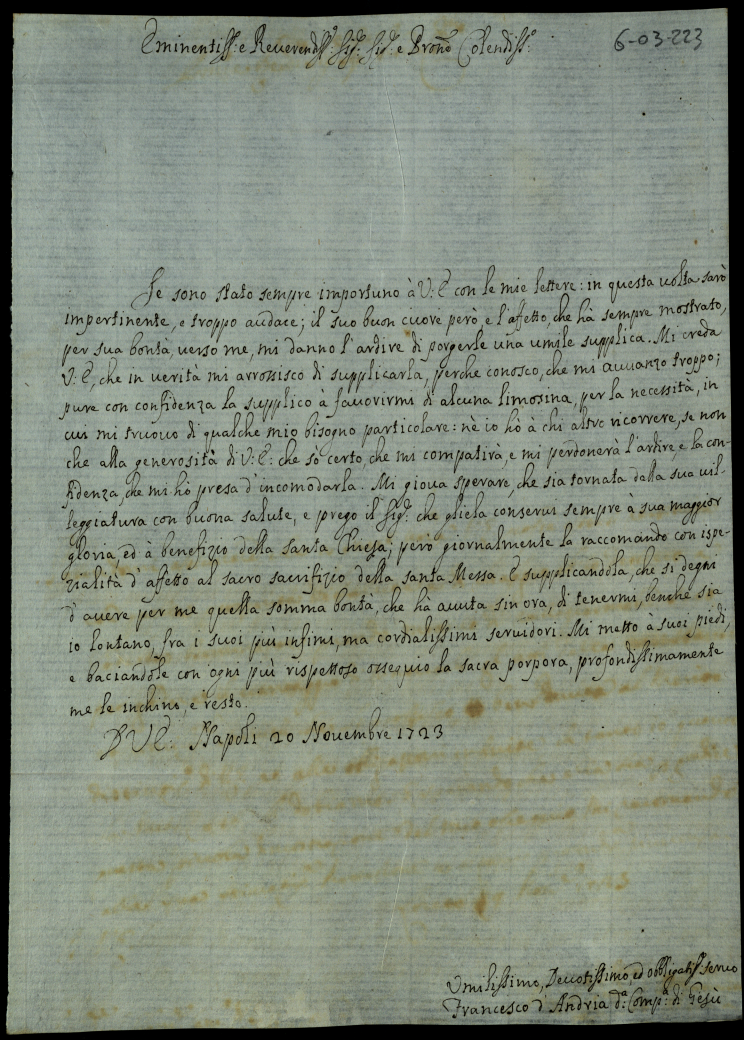 Eminentiss: e Reverendiss: Sig: Sig: e Prone Colendiss:
6-03-223
Se sono stato sempre importuno à V: E con le mie lettere: in questa volta sarò
impertinente, e troppo audace; il suo buon cuore però e l'affetto, che hà sempre mostrato,
per sua bontà, verso me, mi danno l'ardire di porgerle una umile supplica. Mi creda
V: E, che in verità mi arrossisco di supplicarla, perche conosco, che mi avvanzo troppo;
pure con confidenza la supplico a favorirmi di alcuna limosina, per la necessità, in
cui mi truovo di qualche mio bisogno particolare: nè io hò à chi altro ricorrere, se non
che alla generosità di V: E: che sò certo, che mi compatirà, e mi perdonerà l'ardire, e la con-
fidenza, che mi hò presa d'incomodarla. Mi giova sperare, che sia tornata dalla sua vil-
leggiatura con buona salute, e prego il Sig: che gliela conservi sempre à sua maggior
gloria, ed à benefizio della santa Chiesa; però giornalmente la raccomando con ispe-
zialità d'affetto al sacro sacrifizio della santa Messa. E supplicandola, che si degni
d'avere per me quella somma bontà, che ha avuta sin ora, di tenermi, benche sia
io lontano, fra i suoi più infimi, ma cordialissimi servidori. Mi metto à suoi piedi,
e baciandole con ogni più rispettoso ossequio la sacra porpora, profondissimamente
me le inchino, e resto.
D V E: Napoli 20 Novembre 1723
Umilissimo, Devotissimo, ed obbligatiss: servo
Francesco d'Andria d:a Comp:a di Gesù